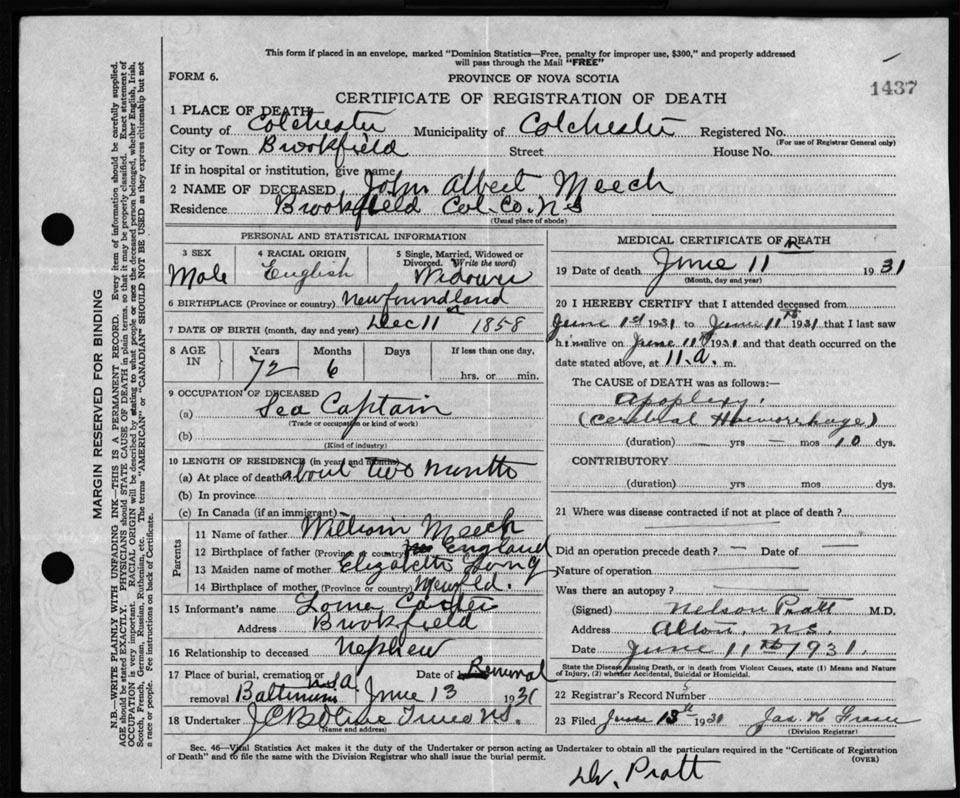 This form if placed in an envelope, marked "Dominion Statistics—Free, penalty for improper use, $300," and properly addressed
will pass through the Mail "FREE"
FORM 6.
PROVINCE OF NOVA SCOTIA
1437
CERTIFICATE OF REGISTRATION OF DEATH
1 PLACE OF DEATH
County of Colchester Municipality of Colchester Registered No.
(For use of Registrar General only)
City or Town Brookfield Street House No.
If in hospital or institution, give name
2 NAME OF DECEASED John Albert Meech
Residence Brookfield Col. Co. N.S
(Usual place of abode)
PERSONAL AND STATISTICAL INFORMATION
3 SEX Male
4 RACIAL ORIGIN English
5 Single, Married, Widowed or Divorced. (Write the word)
6 BIRTHPLACE (Province or country) Newfoundland
7 DATE OF BIRTH (month, day and year) Dec 11 1858
8 AGE IN Years Months Days If less than one day,
72 6 hrs. or min.
9 OCCUPATION OF DECEASED
(a) Sea Captain
(Trade or occupation or kind of work)
(b)
(Kind of industry)
10 LENGTH OF RESIDENCE (in years and months)
(a) At place of death about two months
(b) In province
(c) In Canada (if an immigrant)
Parents
11 Name of father William Meech
12 Birthplace of father (Province or country) England
13 Maiden name of mother Elizabeth Long
14 Birthplace of mother (Province or country) Newfld.
15 Informant's name
Address Brookfield
16 Relationship to deceased Nephew
17 Place of burial, cremation or Date of Removal
removal June 13 1931
18 Undertaker
(Name and address)
MEDICAL CERTIFICATE OF DEATH
19 Date of death June 11 1931
(Month, day and year)
20 I HEREBY CERTIFY that I attended deceased from
June 1st 1931 to June 11th 1931 that I last saw
him alive on June 11th 1931 and that death occurred on the
date stated above, at 11.a. m.
The CAUSE of DEATH was as follows:—
Apoplexy.
(Cerebral Haemorrhage)
(duration) — yrs — mos 10 dys.
CONTRIBUTORY
(duration) yrs mos dys.
21 Where was disease contracted if not at place of death?
Did an operation precede death? — Date of —
Nature of operation
Was there an autopsy?
(Signed) Nelson Pratt M.D.
Address Alton, N.S.
Date June 11th 1931.
State the Disease causing Death, or in death from Violent Causes, state (1) Means and Nature
of Injury, (2) whether Accidental, Suicidal or Homicidal.
22 Registrar's Record Number 5
23 Filed June 13th 1931 Jas. K Fraser
(Division Registrar)
Sec. 46—Vital Statistics Act makes it the duty of the Undertaker or person acting as Undertaker to obtain all the particulars required in the "Certificate of Registration
of Death" and to file the same with the Division Registrar who shall issue the burial permit.
(OVER)
Dr. Pratt
MARGIN RESERVED FOR BINDING
N.B.—WRITE PLAINLY WITH UNFADING INK—THIS IS A PERMANENT RECORD. Every item of information should be carefully supplied.
AGE should be stated EXACTLY. PHYSICIANS should STATE CAUSE OF DEATH in plain terms, so that it may be properly classified. Exact statement of
OCCUPATION is very important. RACIAL ORIGIN will be described by stating to what people or race the deceased person belonged, whether English, Irish,
Scotch, French, German, Russian, Ruthenian, etc. The terms "AMERICAN" or "CANADIAN" SHOULD NOT BE USED as they express citizenship but not
a race or people. See instructions on back of Certificate.